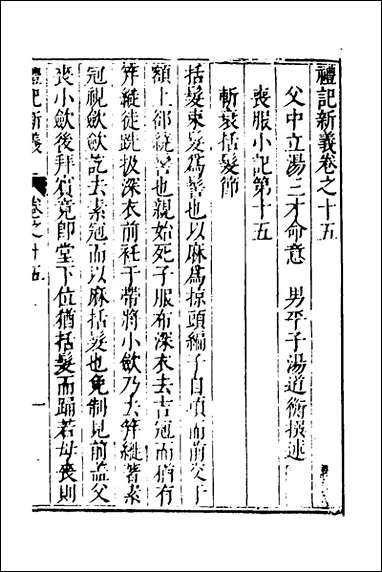 禮記新義卷之十五
父中立湯三才命意　男平子湯道衡撰述
喪服小記第十五
斬衰括髮節
括髮束髮爲髻也以麻爲掠頭編子自項而前交于
額上郤繞髻也親始死子服布深衣去吉冠而猶有
笄縰徒跣扱深衣前衽于帶將小歛乃去笄縰著素
冠視歛歛訖去素冠而以麻括髮也免制見前蓋父
喪小歛後拜賓竟即堂下位猶括髮而踊若母喪則
禮記新義　卷之十五　一